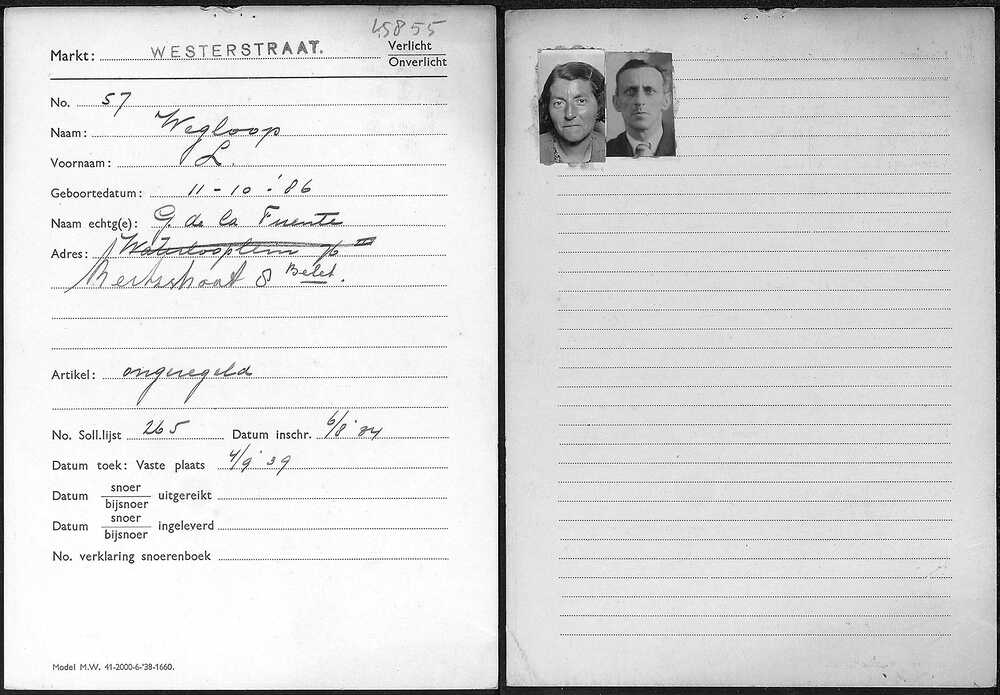 45855
Markt: WESTERSTRAAT. Verlicht
Onverlicht
No. 57
Naam: Wegloop
Voornaam: L.
Geboortedatum: 11-10-'86
Naam echtg(e): G. de la Fuente
Adres: Waterlooplein 76 III
8 Belet.
Artikel: ongeregeld
No. Soll.lijst 265 Datum inschr. 6/8 '34
Datum toek: Vaste plaats 4/9 '39
Datum snoer
bijsnoer uitgereikt
Datum snoer
bijsnoer ingeleverd
No. verklaring snoerenboek
Model M.W. 41-2000-6-'38-1660.